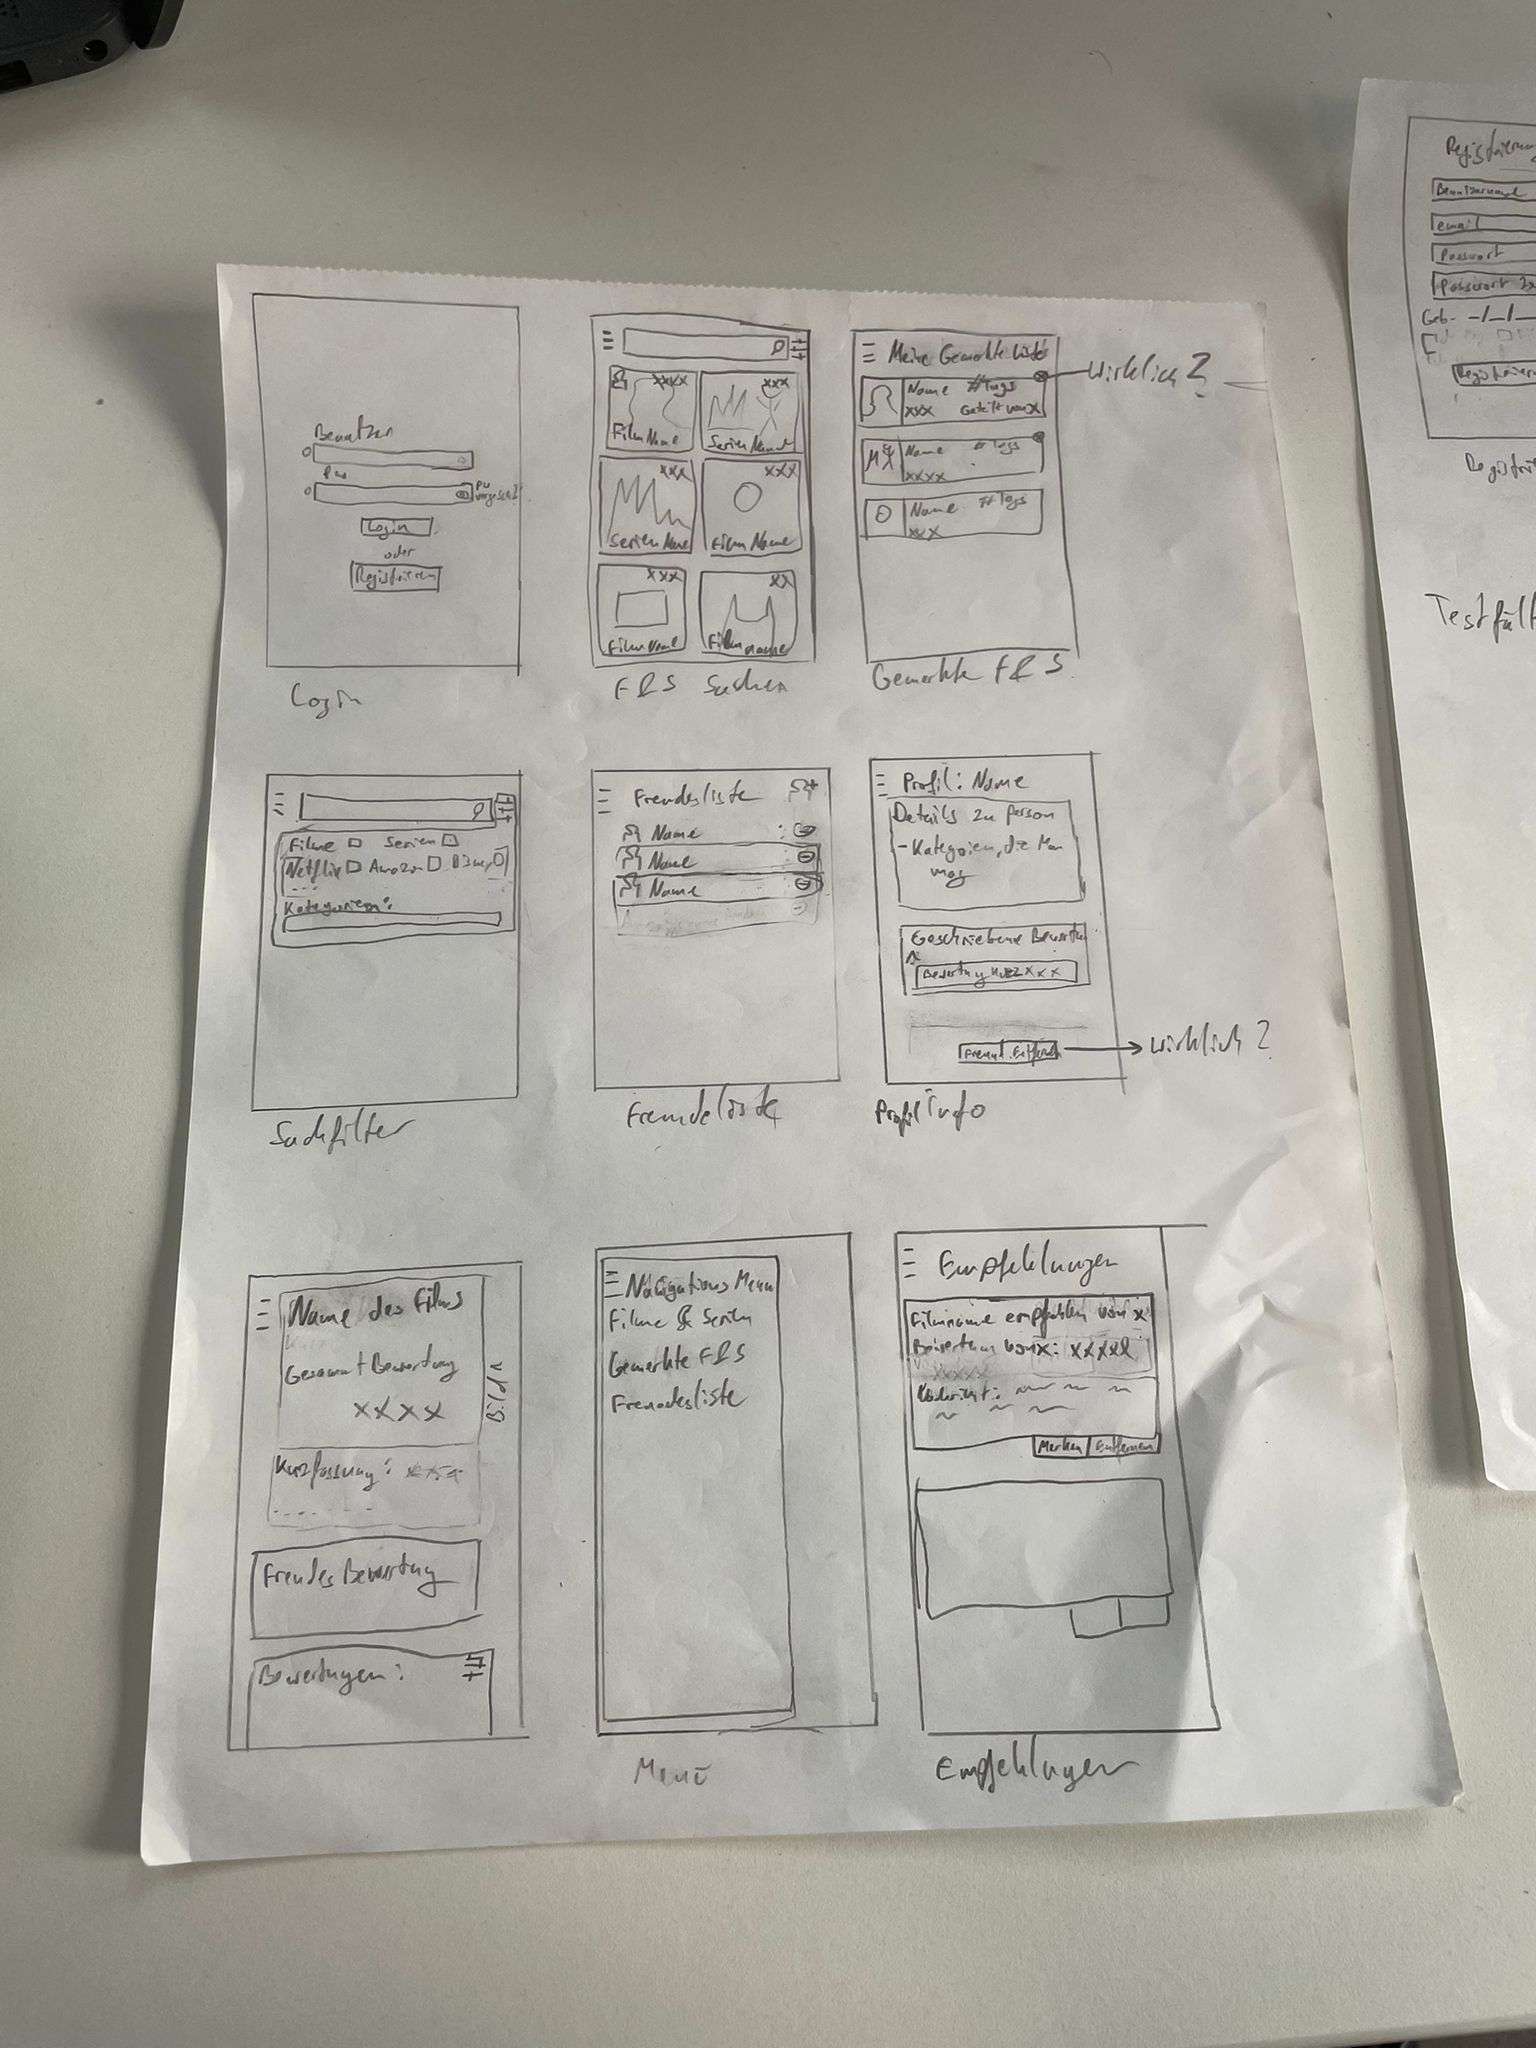 Benutzer
PW
PW
Login
oder
Registrieren
Login
xxxx
Film Name
xxx
Serien Name
xxx
Serien Name
xxx
Film Name
xxx
Film Name
xx
Film name
F&S Suchen
Meine Gemerkte Liste
Name #Tags
xxx Geteilt von X
Wirklich?
Name #Tags
xxxx
Name #Tags
xxx
Gemerkte F&S
Filme Serien
Netflix Amazon
Kategorien:
Suchfilter
Freundesliste
Name
Name
Name
Freundeliste
Profil: Name
Details zu Person
- Kategorien, die Man
mag
Geschriebene
Bewertung xxx
Freund Entfernen
Wirklich?
Profil Info
Name des Films
Gesamt Bewertung
xxxx
Bild
Kurzfassung:
Freundes Bewertung
Bewertungen:
Navigations Menu
Filme & Serien
Gemerkte F&S
Freundesliste
Menü
Empfehlungen
Filmname empfohlen von x
Bewertung von x: xxxxx
xxxxx
Merken Entfernen
Empfehlungen
Benutzername
email
Passwort
Passwort 2x
Geb. -/-/-